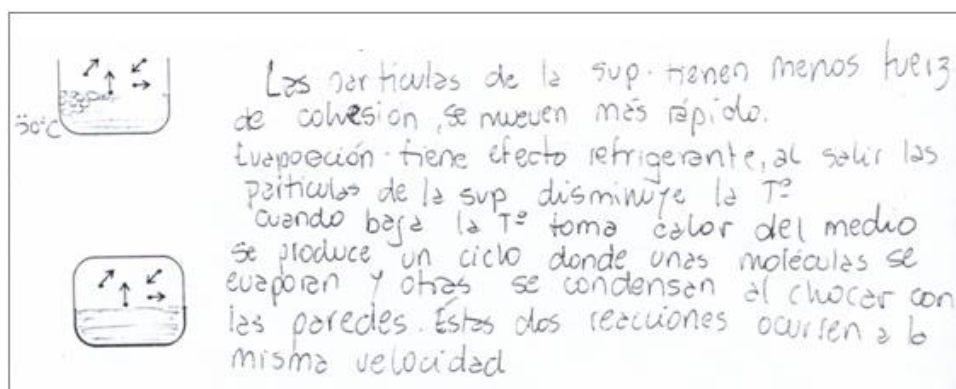 50°C
Las particulas de la sup. tienen menos fuerz
de cohesion, se mueven más rápido.
Evaporación tiene efecto refrigerante, al salir las
particulas de la sup disminuye la Tº
cuando baja la Tº toma calor del medio
se produce un ciclo donde unas moléculas se
evaporan y otras se condensan al chocar con
las paredes. Estas dos reacciones ocurren a la
misma velocidad